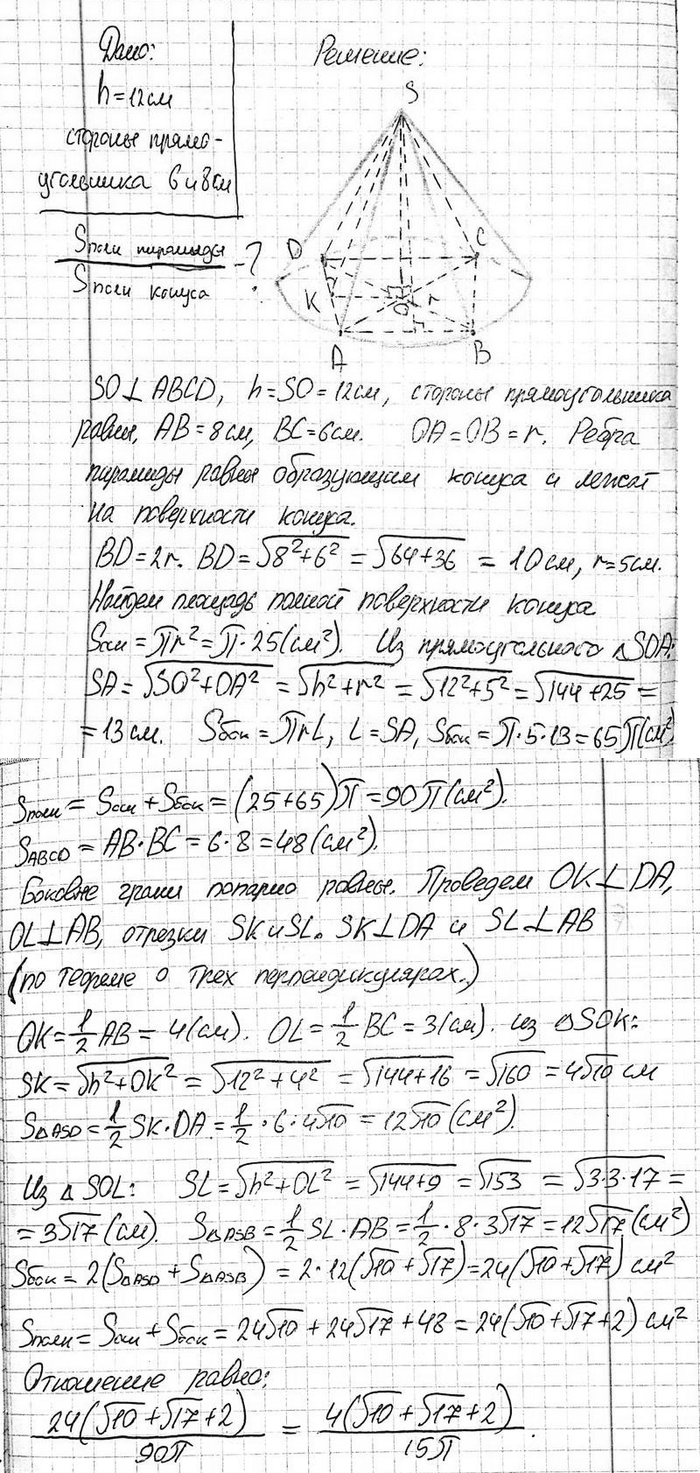 Дано:
h=12см
стороны прямо-
угольника 6 и 8см
Sполн пирамиды
Sполн конуса
-?
Решение:
S
D
C
K
O
r
A
B
SO⊥ABCD, h=SO=12см, стороны прямоугольника
равны, AB=8см, BC=6см. OA=OB=r. Ребра
пирамиды равны образующим конуса и лежат
на поверхности конуса.
BD=2r. BD=√(8²+6²)=√(64+36) = 10см, r=5см.
Найдем площадь полной поверхности конуса
Sосн=πr²=π·25(см²). Из прямоугольного △SOA:
SA=√(SO²+OA²)=√(h²+r²)=√(12²+5²)=√(144+25)=
=13см. Sбок=πrL, L=SA, Sбок=π·5·13=65π(см²)
Sполн=Sосн+Sбок=(25+65)π=90π(см²).
SABCD=AB·BC=6·8=48(см²).
Боковые грани попарно равны. Проведем OK⊥DA,
OL⊥AB, отрезки SK и SL. SK⊥DA и SL⊥AB
(по теореме о трех перпендикулярах.)
OK=1/2AB=4(см). OL=1/2BC=3(см). из △SOK:
SK=√(h²+OK²)=√(12²+4²)=√(144+16)=√160=4√10 см
S△ASD=1/2SK·DA=1/2·6·4√10=12√10(см²).
Из △SOL: SL=√(h²+OL²)=√(144+9)=√153=√(3·3·17)=
=3√17(см). S△ASB=1/2SL·AB=1/2·8·3√17=12√17(см²)
Sбок=2(S△ASD+S△ASB)=2·12(√10+√17)=24(√10+√17) см²
Sполн=Sосн+Sбок=24√10+24√17+48=24(√10+√17+2) см²
Отношение равно:
24(√10+√17+2)/90π = 4(√10+√17+2)/15π.